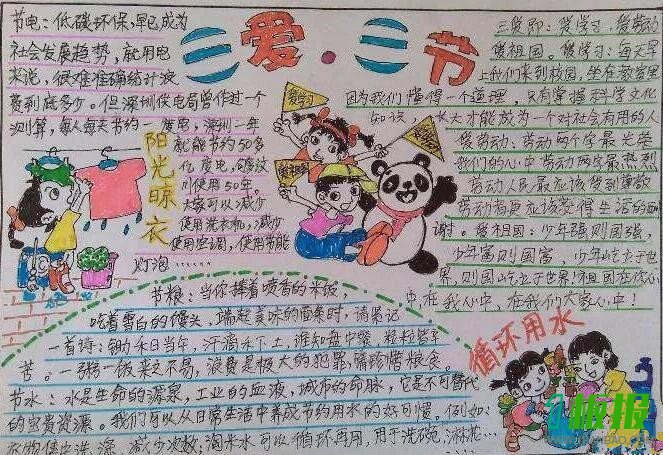 三爱·三节
节电:低碳环保,早已成为
社会发展趋势,就用电
来说,很难准确统计浪
费到底多少。但深圳供电局曾作过一个
测算,每人每天节约一度电,深圳一年
就能节约50多
亿度电,
用50年。
大家可以减少
使用洗衣机,减少
使用空调,使用节能
灯泡……
阳光晾衣
三爱即:爱学习、爱劳动
爱祖国。爱学习:每天早
上我们来到校园,坐在教室里
因为我们懂得一个道理,只有掌握科学文化
知识,长大才能成为一个对社会有用的人
爱劳动:劳动两个字最光荣
我们的心中劳动两字最
劳动人民最应该受到尊敬
劳动 更应该获得生活的
谢。爱祖国:少年强则国强,
少年富则国富,少年屹立于世
界,则国屹立于世界!祖国在你心
中,在我心中,在我们大家心中!
爱学习
节粮:当你捧着喷香的米饭,
吃着雪白的馒头,端起美味的 时,请君记
一首诗:锄禾日当午,汗滴禾下土,谁知盘中餐,粒粒皆辛
苦。一粥一饭来之不易,浪费是极大的犯罪,请珍惜粮食。
节水:水是生命的源泉,工业的血液,城市的命脉,它是不可替代
的宝贵资源。我们可以从日常生活中养成节约用水的好习惯。例如:
衣物集中洗涤,减少次数;淘米水可以循环再用,用于洗碗,淋花…
循环用水
板报